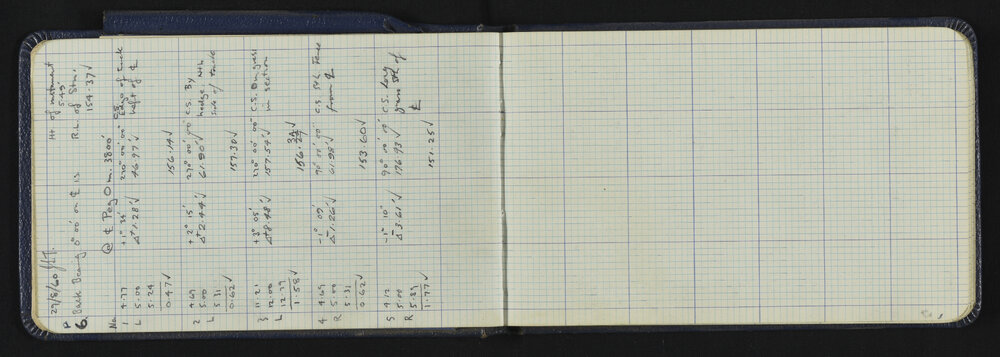 29/8/60
Ht of instrument
5.45'
P
6. Back Bearing 0° 00' on ℄ is
R.L. of Stn.
154.37 ✓
No. @ ℄ Peg 0 m. 3800'
1 4.77 +1° 34' 270° 00' 00" C.S. Edge of track
L 5.00 Δ+1.28' ✓ 46.97' ✓ left of ℄
5.24
0.47 ✓ 156.14 ✓
2 4.69 +2° 15' 270° 00' 00" C.S. By
5.00 Δ+2.44' ✓ 61.90' ✓ hedge Nth
L 5.31 side of
0.62 ✓ 157.30 ✓
3 11.21 +3° 05' 270° 00' 00" C.S. On grass
12.00 Δ+8.48' ✓ 157.54' ✓ in section
L 12.79
1.58 ✓ 156.34 ✓
4 4.69 -1° 09' 90° 00' 00" C.S. Sth Fence
R 5.00 Δ-1.26' ✓ 61.98' ✓ from ℄
5.31
0.62 ✓ 153.60 ✓
5 4.12 -1° 10' 90° 00' 00" C.S. Long
5.00 Δ-3.61' ✓ 176.93' ✓ grass Sth of
R 5.89 ℄
1.77 ✓ 151.25 ✓